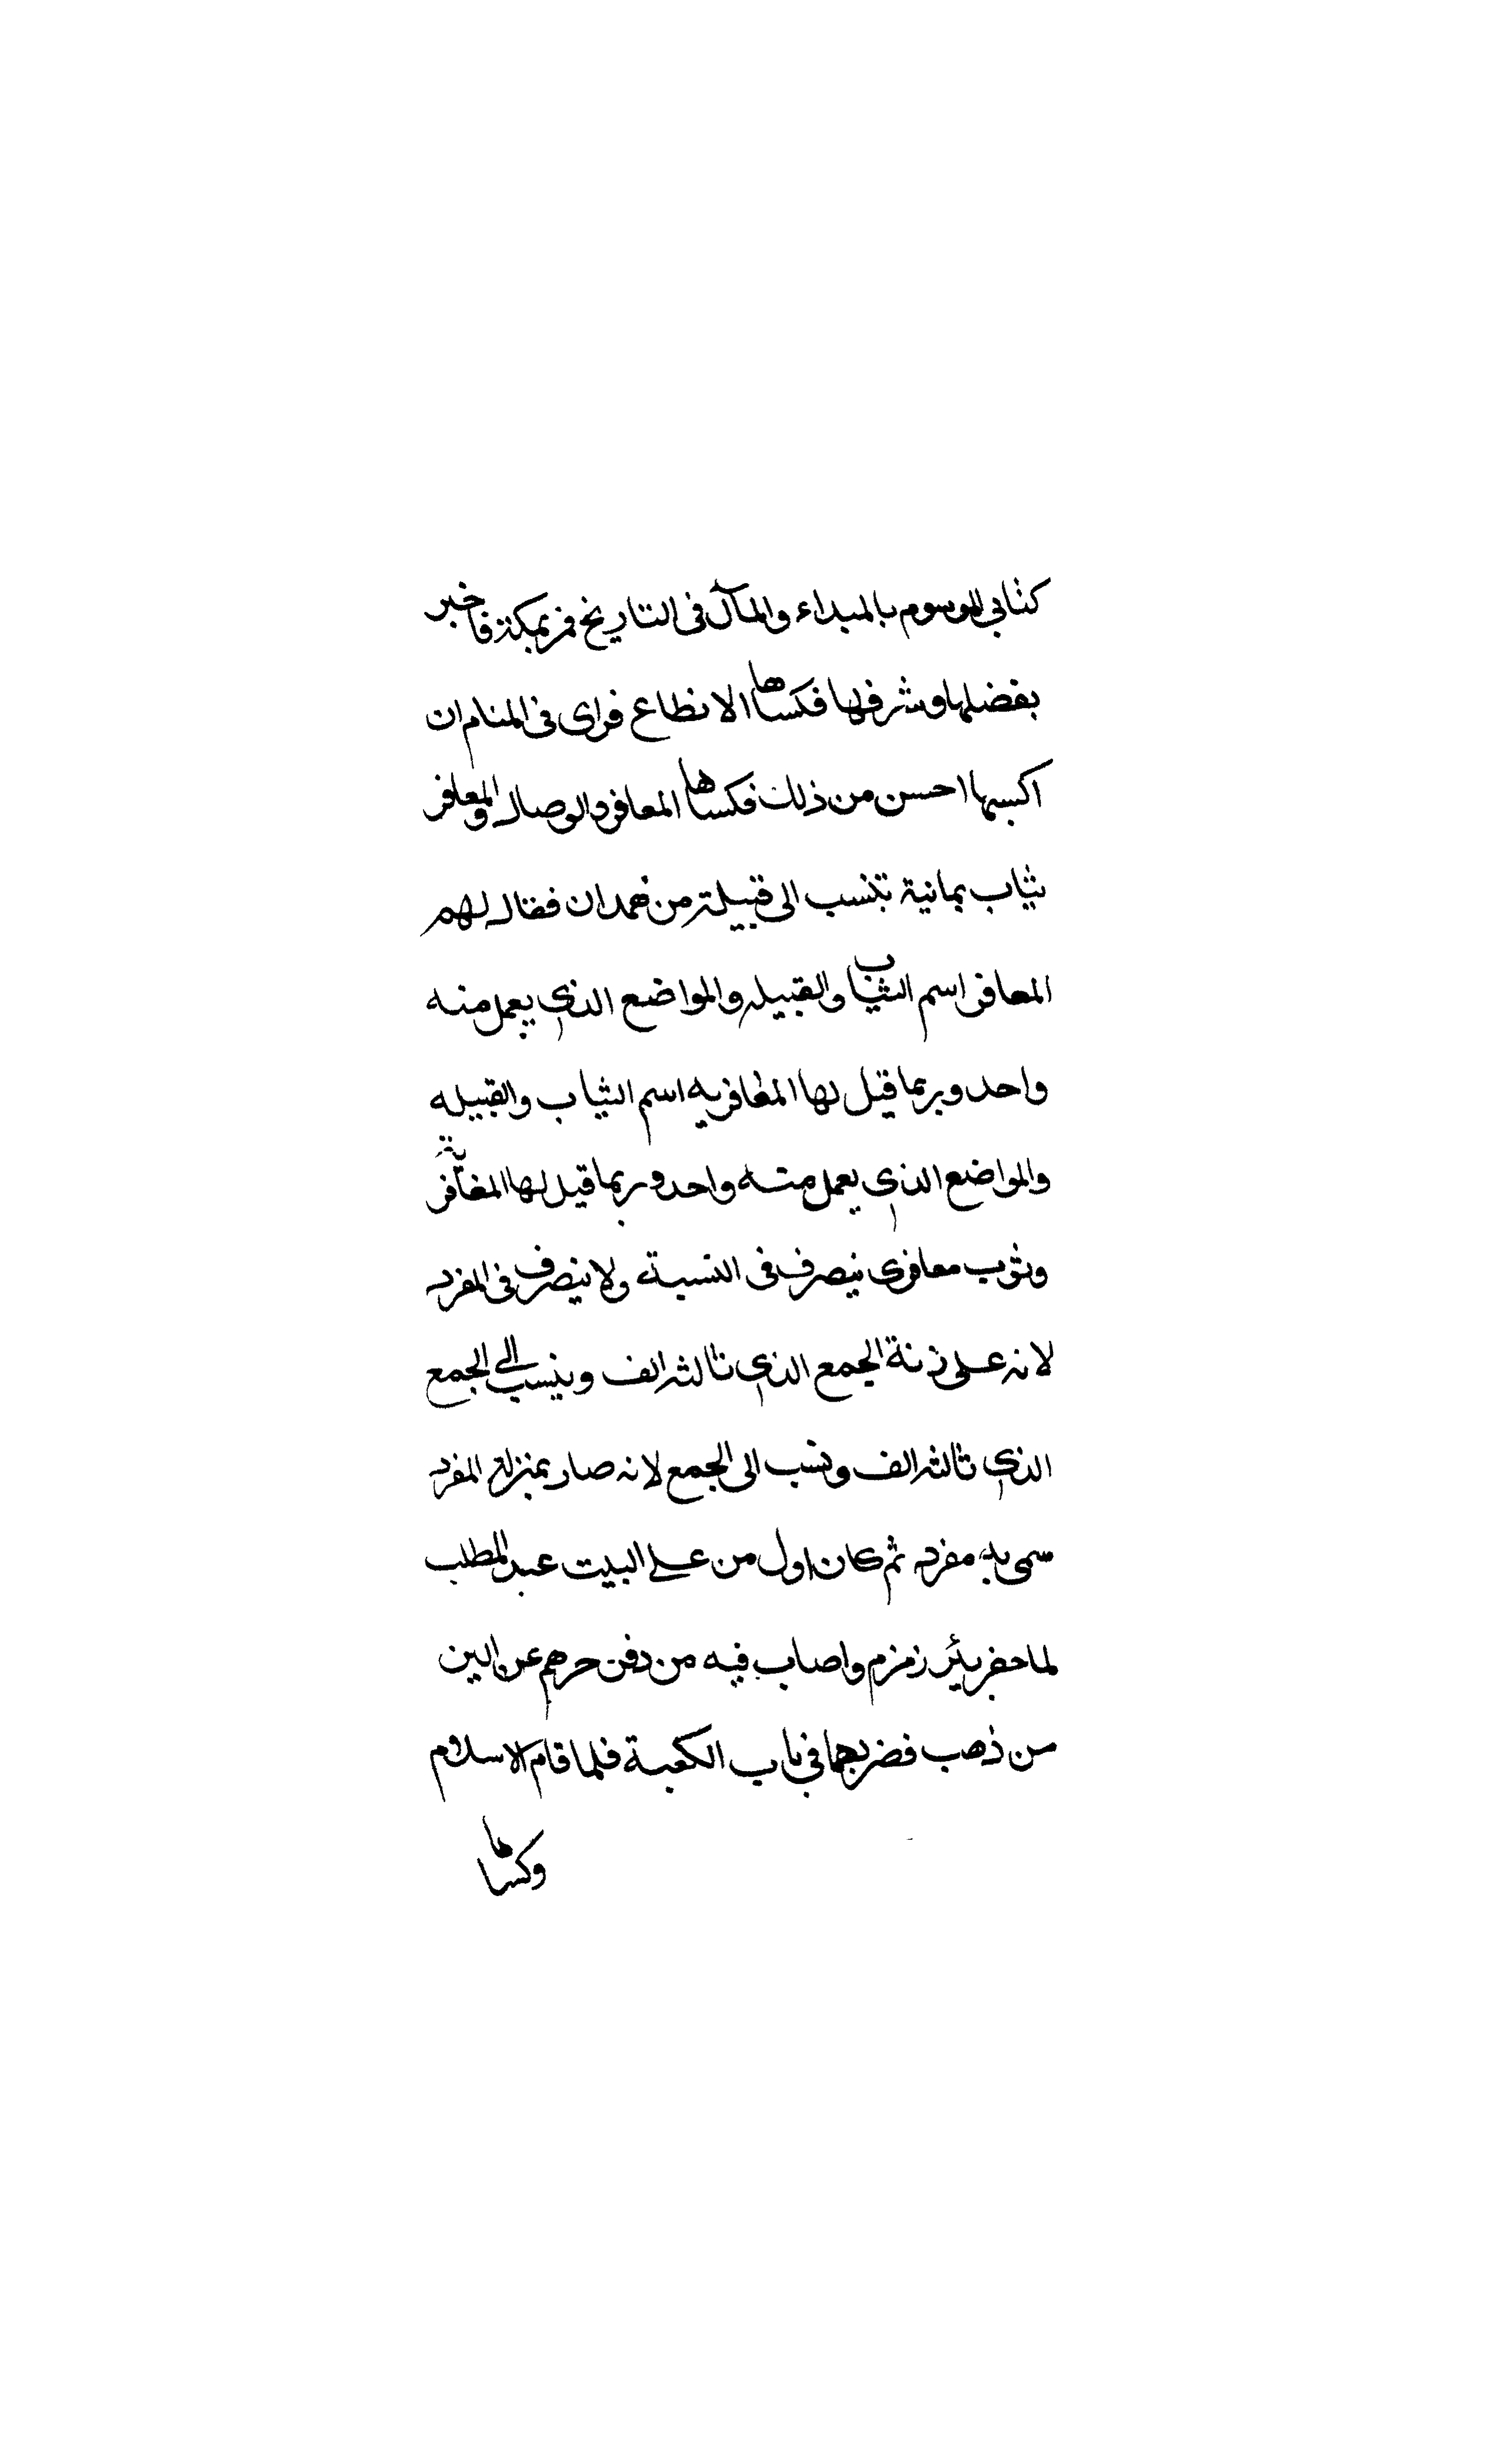 كتابي الموسوم بالمبداء والمآل فى التاريخ فمر بمكة فاخبر
بفضلها وشرفها فكساها الانطاع فراى فى المنام ان
اكسها احسن من ذلك فكساها المعافر والوصال والمعافر
ثياب يمانية تنسب الى قبيلة من همدان فقال لهم
المعافر اسم الثياب والقبيله والمواضع الذي يعمل منه
واحد وربما قيل لها المعافريه اسم الثياب والقبيله
والمواضع الذي يعمل منه واحد وربما قيل لها المغافر
وثوب معافرى ينصرف فى النسبة ولا ينصرف فى المفرد
لانه على زنة الجمع الذي ثالثه الف وينسب الى الجمع
الذي ثالثه الف ونسب الى الجمع لانه صار بمنزلة المفرد
سمى به مفرد ثم كان اول من على البيت عبد المطلب
لما حفر بئر زمزم واصاب فيه من دفن جرهم غزالين
من ذهب فضربهما في باب الكعبة فلما قام الاسلام
وكساها